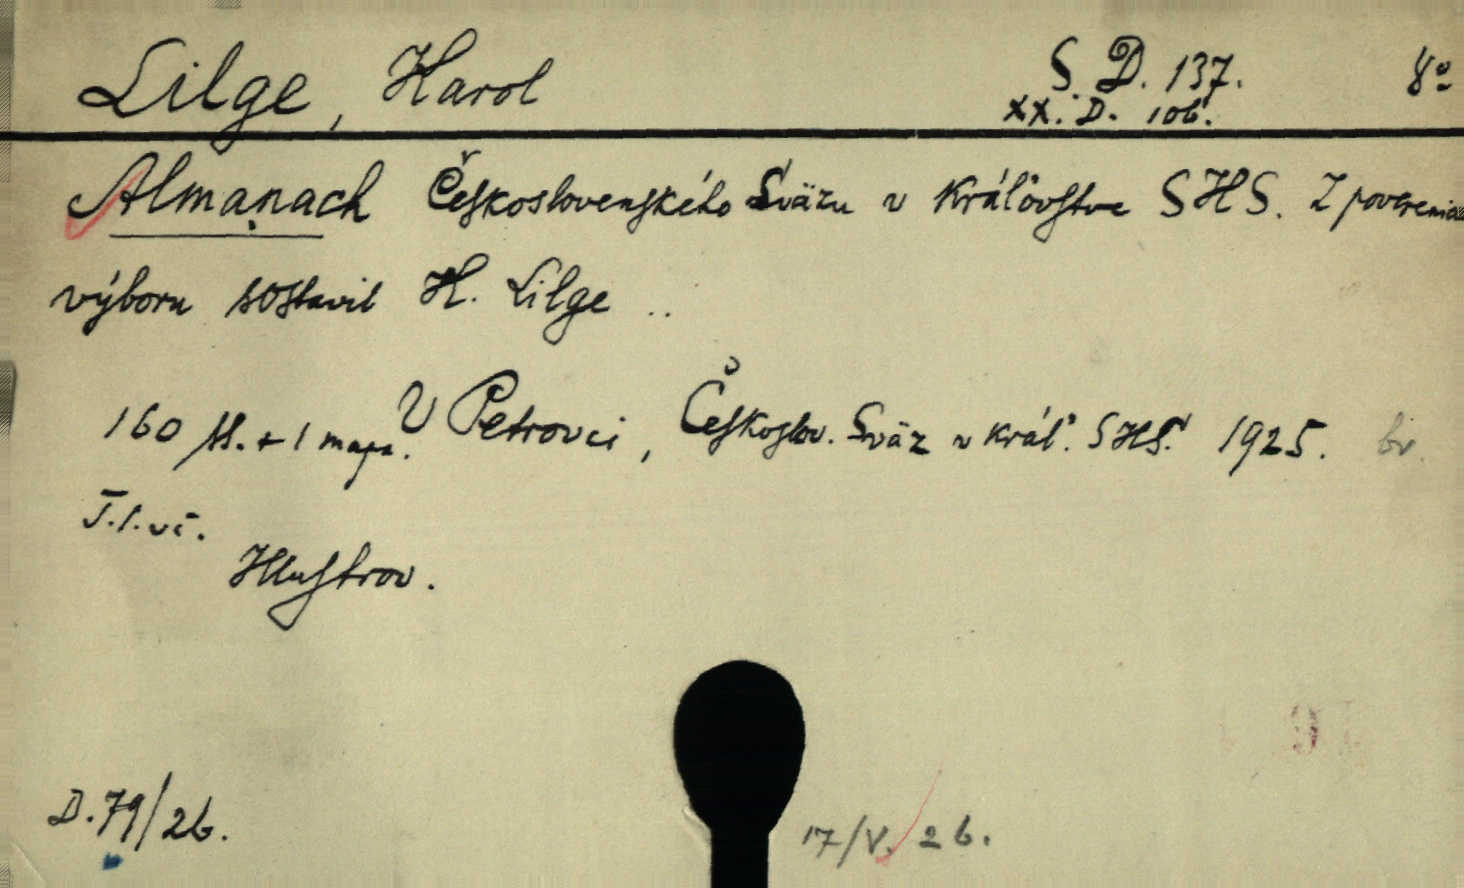 Lilge, Karol S. D. 137. 8º
XX. D. 106.
Almanach Československého Sväzu v Kráľovstve SHS. Z poverenia
výboru sostavil K. Lilge ..
160 str. + 1 mapa. V Petrovci, Českoslov. Sväz v Kráľ. SHS. 1925. br.
Illustrov.
D. 79/26.
17/V. 26.